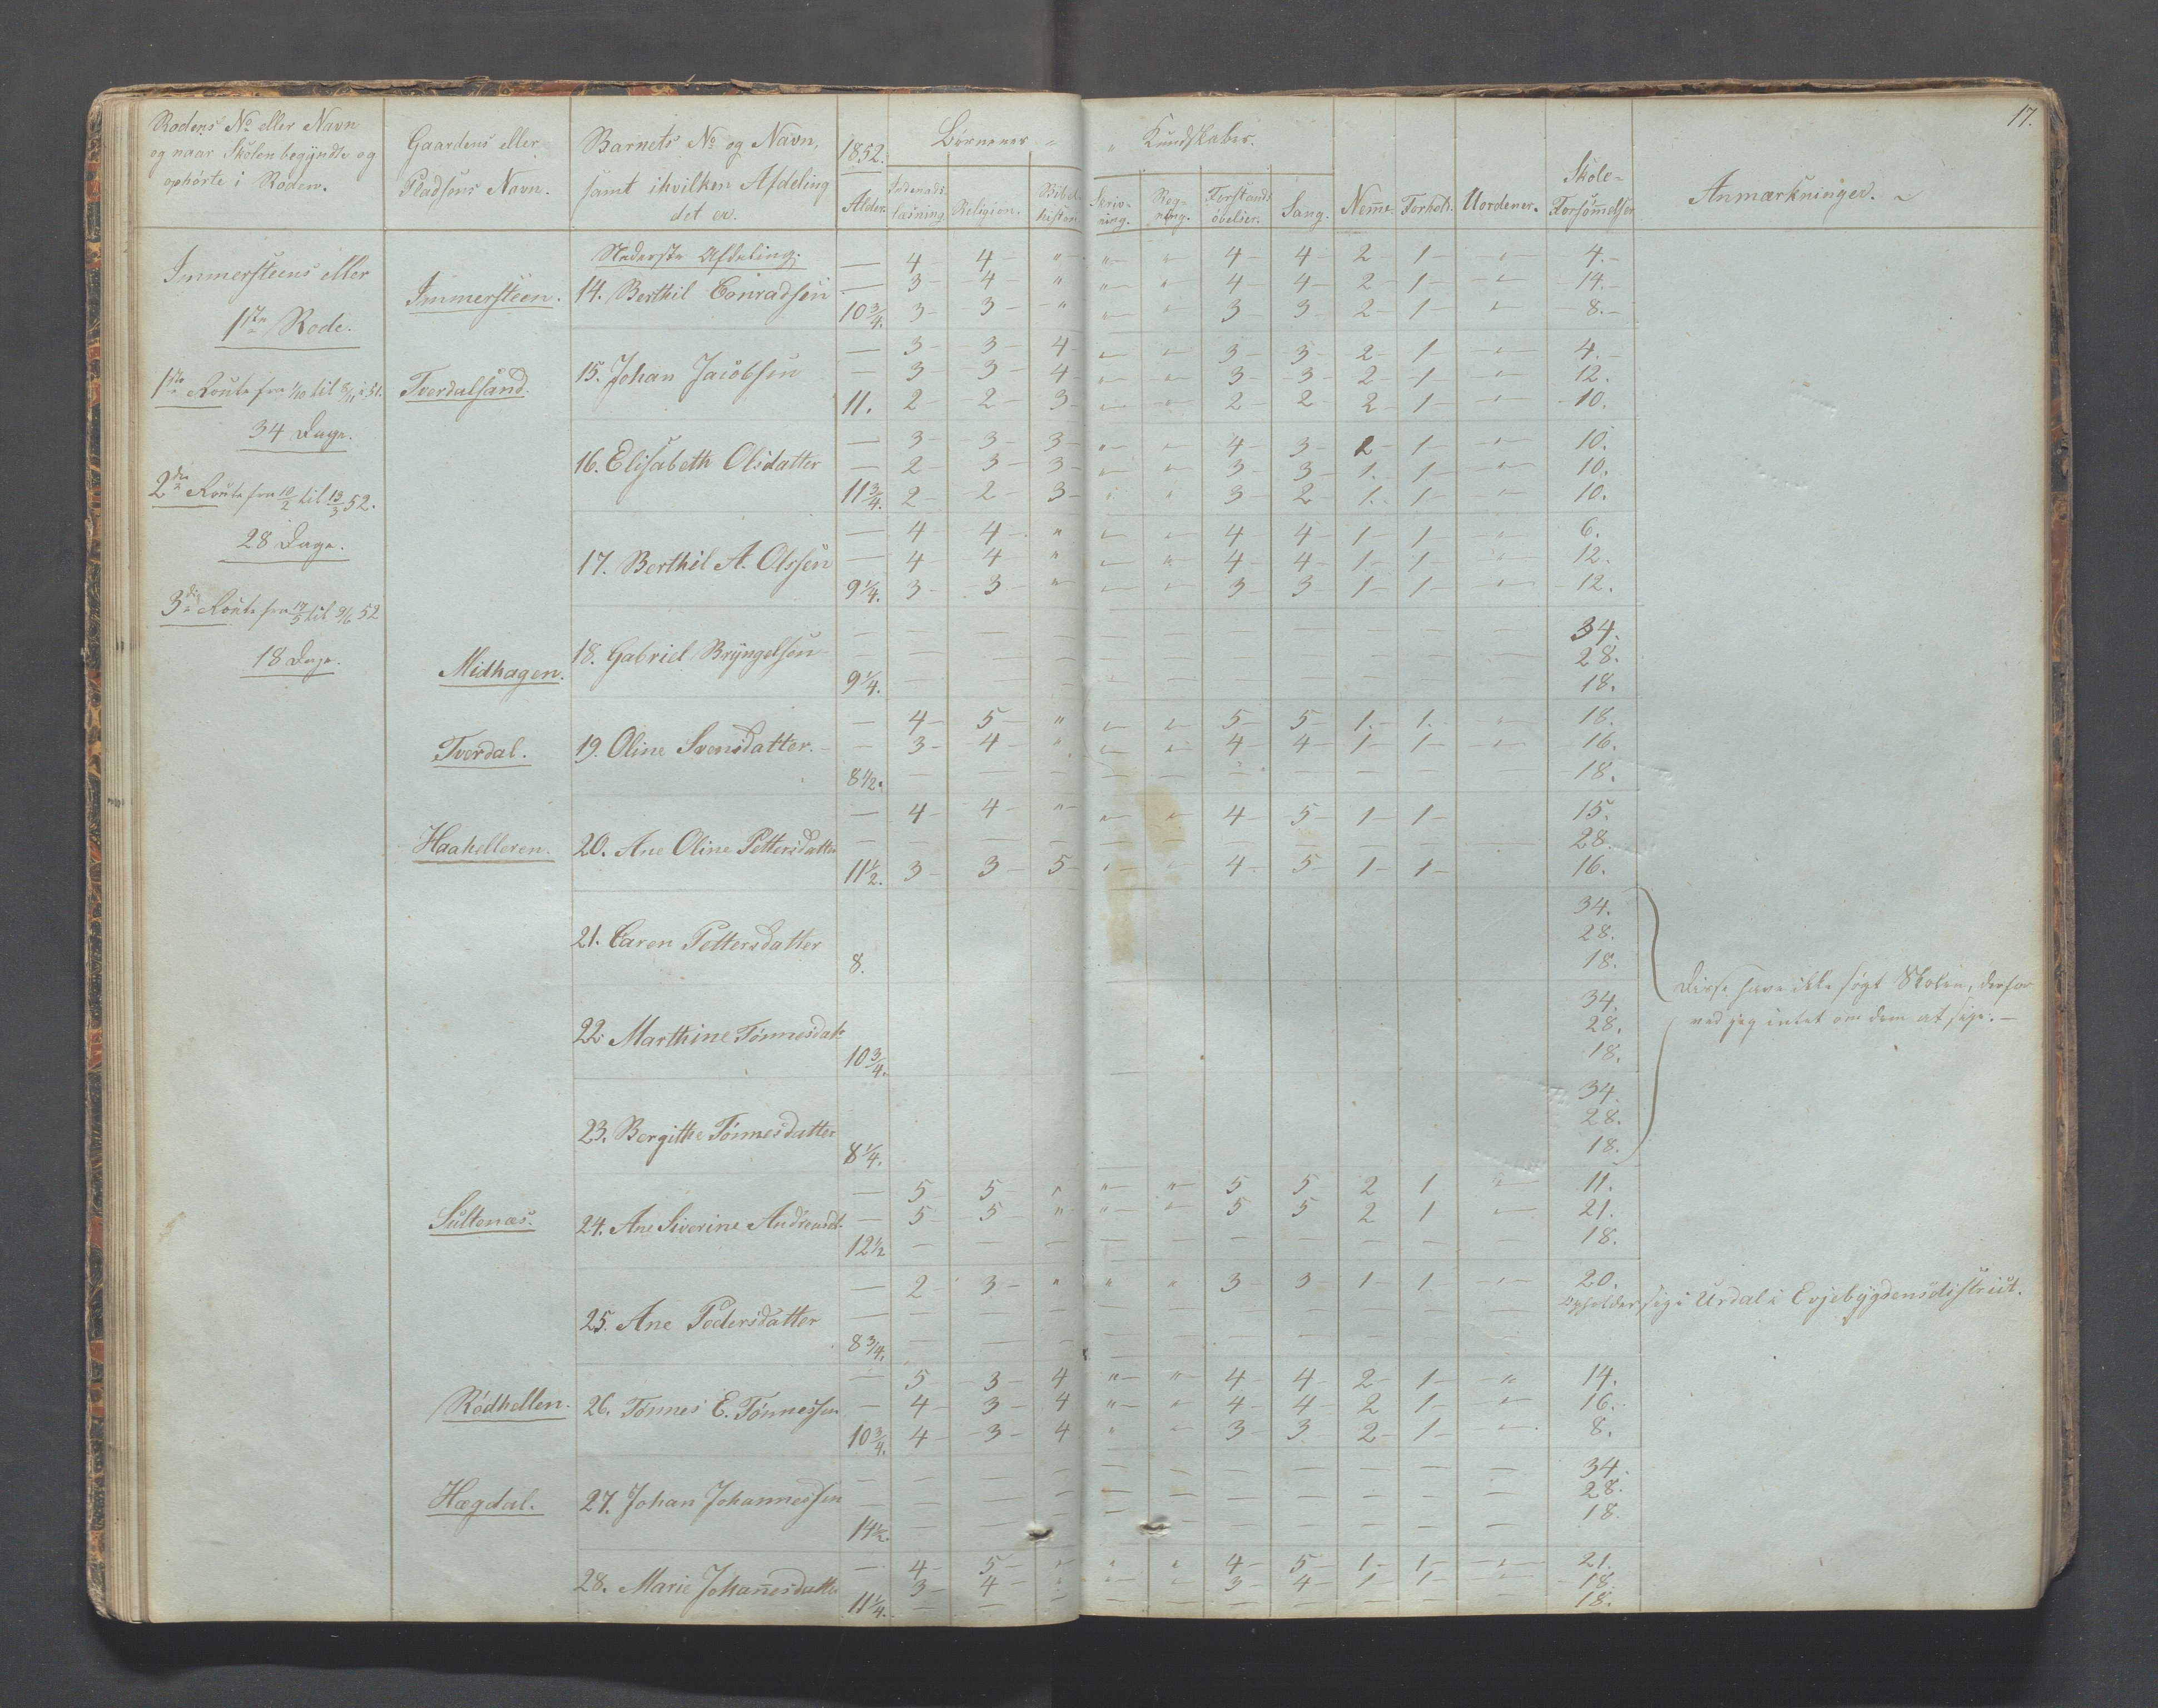 17.
Rodens No eller Navn
og naar Skolen begyndte og
ophørte i Roden.
Gaardens eller
Pladsens Navn.
Barnets No og Navn,
samt ihvilken Afdeling
det er.
1852.
Alder.
Børnenes
Kundskaber.
Indenads-
læsning
Religion.
Bibel-
histori
Skriv-
ning.
Reg-
ning.
Forstands
øvelser.
Sang.
Nemme
Forhold.
Uordener.
Skole-
Forsømmelser
Anmærkninger.
Immersteens eller
1ste Rode.
1ste Route fra 1/10 til 8/11 i 51.
34 Dage.
2den Route fra 10/2 til 13/3 52.
28 Dage.
3die Route fra 17/5 til 9/6 52
18 Dage.
Nederste Afdeling.
— 4 4 " " " 4 4 2 1 " 4.
Immersteen. 14. Berthil Conradsen — 3 4 " " " 4 4 2 1 " 14.
10 3/4. 3 3 " " " 3 3 2 1 " 8.
— 3 3 4 " " 3 3 2 1 " 4.
Tverdalsand. 15. Johan Jacobsen — 3 3 4 " " 3 3 2 1 " 12.
11. 2 2 3 " " 2 2 2 1 " 10.
— 3 3 3 " " 4 3 2 1 " 10.
16. Elisabeth Olsdatter — 2 3 3 " " 3 3 1 1 " 10.
11 3/4. 2 2 3 " " 3 2 1 1 " 10.
— 4 4 " " " 4 4 1 1 " 6.
17. Berthil A. Olssen — 4 4 " " " 4 4 1 1 " 12.
9 1/4. 3 3 " " " 3 3 1 1 " 12.
— — — — — — — — — — — 34.
Midhagen. 18. Gabriel Bryngelsen — — — — — — — — — — — 28.
9 1/4. — — — — — — — — — — 18.
— 4 5 " " " 5 5 1 1 " 18.
Tverdal. 19. Oline Svensdatter. — 3 4 " " " 4 4 1 1 " 16.
8 1/2. — — — — — — — — — — 18.
— 4 4 " " " 4 5 1 1 15.
Haahelleren. 20. Ane Oline Pettersdatter — — — — — — — — — — — 28.
11 1/2. 3 3 5 " " 4 5 1 1 16.
34.
21. Caren Pettersdatter 28.
8. 18.
34.
22. Marthine Tønnesdatr 28.
10 3/4. 18.
Disse have ikke søgt Skolen, derfor
ved jeg intet om dem at sige. —
34.
23. Bergithe Tønnesdatter 28.
8 1/4. 18.
— 5 5 " " " 5 5 2 1 " 11.
Sultenæs. 24. Ane Siverine Andreasdt. — 5 5 " " " 5 5 2 1 " 21.
12 1/2 — — — — — — — — — — 18.
— 2 3 " " " 3 3 1 1 " 20.
25. Ane Pedersdatter — — — — — — — — — — — Opholder sig i Urdal i Evjebygdens district.
8 3/4. — — — — — — — —
— 5 3 4 " " 4 4 2 1 " 14.
Rødhellen. 26. Tønnes E. Tønnessen — 4 3 4 " " 4 4 2 1 " 16.
10 3/4. 4 3 4 " " 3 3 2 1 " 8.
— — — — — — — — — — — 34.
Hægdal. 27. Johan Johannessen — — — — — — — — — — — 28.
14 1/2. — — — — — — — — — — 18.
— 4 5 " " " 4 5 1 1 " 21.
28. Marie Johannesdatter 3 4 " " " 3 4 1 1 " 18.
11 1/4. — — — — — — — — — — 18.